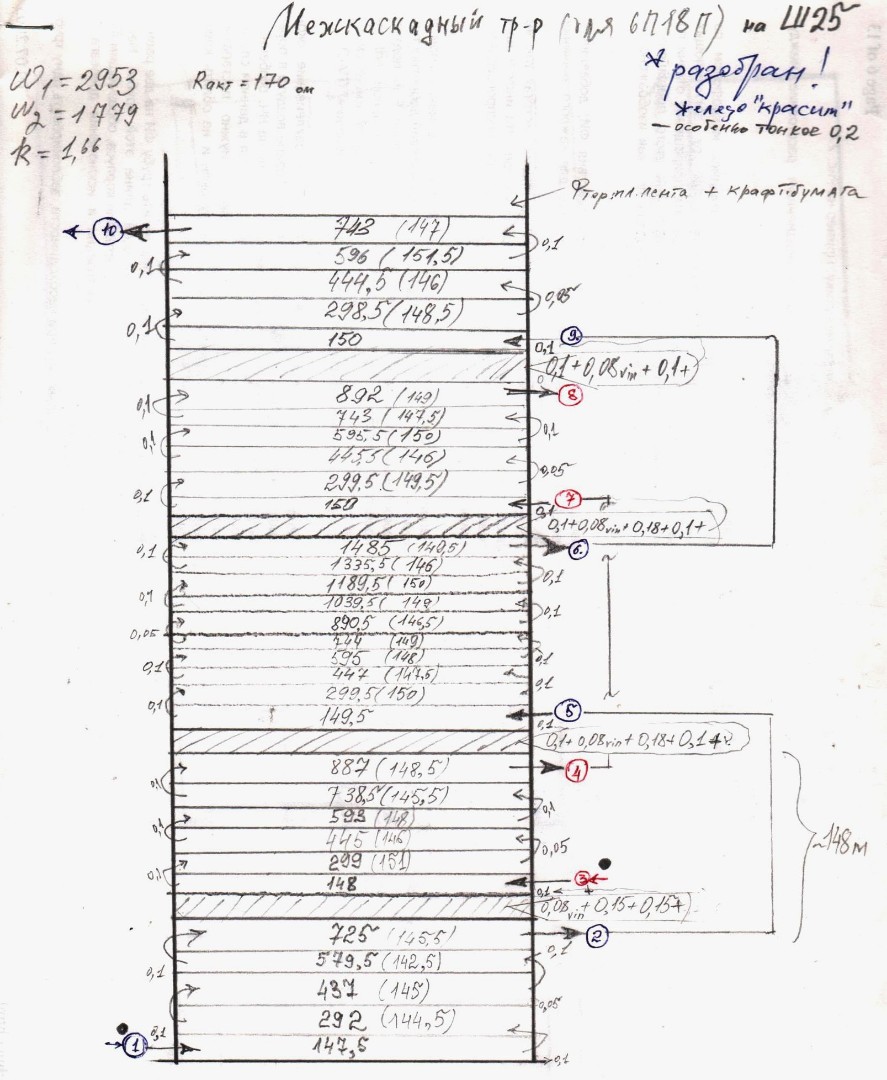 Межкаскадный тр-р (для 6П18П) на Ш25
* разобран!
железо "красит"
— особенно тонкое 0,2
W1 = 2953
W2 = 1779
k = 1,66
Rакт = 170 ом
Фтор.пл.лента + крафт.бумага
10
743 (147)
0,1
596 (151,5)
0,1
444,5 (146)
0,05
298,5 (148,5)
0,1
150
9
0,1
0,1+0,08vin+0,1+
892 (149)
8
0,1
743 (147,5)
0,1
595,5 (150)
0,1
445,5 (146)
0,05
299,5 (149,5)
0,1
150
7
0,1
0,1+0,08vin+0,18+0,1+
1485 (149,5)
6
0,1
1335,5 (146)
0,1
1189,5 (150)
0,1
1039,5 (149)
0,1
890,5 (146,5)
0,05
744 (149)
595 (148)
0,1
0,1
447 (147,5)
0,1
299,5 (150)
0,1
149,5
5
0,1
0,1+0,08vin+0,18+0,1+
887 (148,5)
4
0,1
738,5 (145,5)
0,1
593 (148)
0,1
445 (146)
0,05
299 (151)
0,1
148
3
0,1
0,08vin+0,15+0,15+
~148м
725 (145,5)
2
0,1
579,5 (142,5)
0,1
437 (145)
0,05
292 (144,5)
0,1
1
147,5
0,1